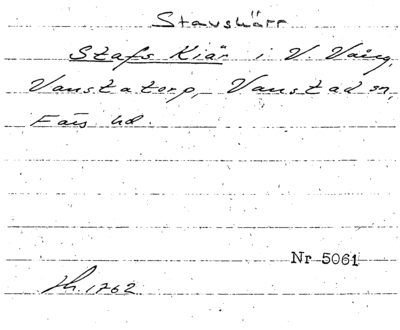 Stavskärr
Stafs Kiär i V. Vång,
Vanstatorp, Vanstad sn,
Färs hd.
Nr 5061
1762